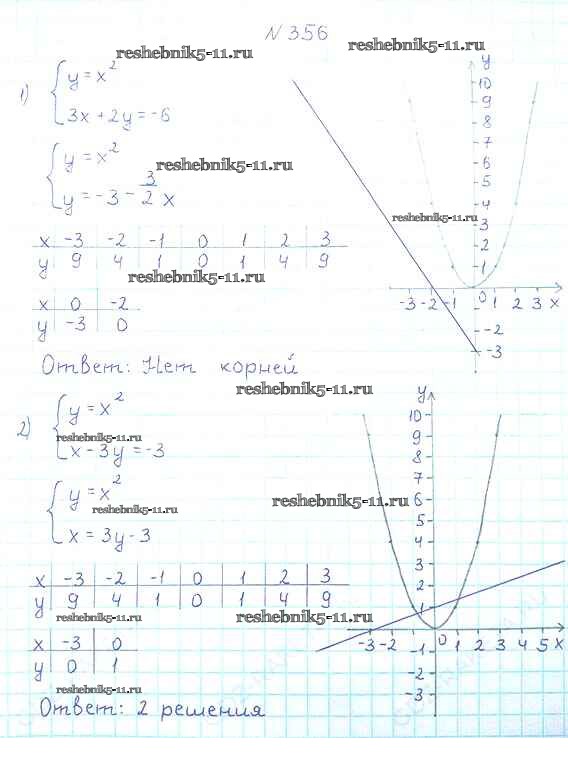 N 356
reshebnik5-11.ru
reshebnik5-11.ru
1) { y = x²
3x + 2y = -6
{ y = x²
reshebnik5-11.ru
y = -3 - 3/2 x
x -3 -2 -1 0 1 2 3
y 9 4 1 0 1 4 9
reshebnik5-11.ru
x 0 -2
y -3 0
Ответ: Нет корней
y
10
9
8
7
6
5
reshebnik5-11.ru
4
3
2
1
-3 -2 -1 0 1 2 3 x
-2
-3
reshebnik5-11.ru
2) { y = x²
reshebnik5-11.ru
x - 3y = -3
{ y = x²
reshebnik5-11.ru
x = 3y - 3
x -3 -2 -1 0 1 2 3
y 9 4 1 0 1 4 9
reshebnik5-11.ru
reshebnik5-11.ru
x -3 0
y 0 1
reshebnik5-11.ru
Ответ: 2 решения
y
10
9
8
7
6
reshebnik5-11.ru
5
4
3
2
1
-3 -2 0 1 2 3 4 5 x
-1
-2
-3